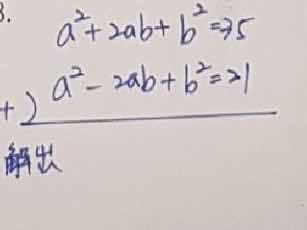 3.
a²+2ab+b²=75
a²-2ab+b²=21
+)
解出